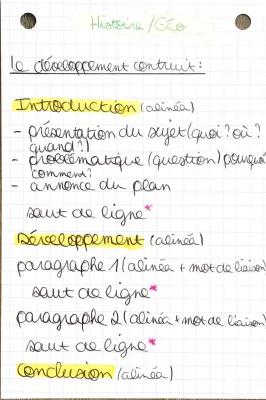 Histoire/Géo
le développement contruit:
Introduction (alinéa)
- présentation du sujet (quoi? où?
quand?)
- problématique (question) pourquoi
comment?
- annonce du plan
saut de ligne*
Développement (alinéa)
paragraphe 1 (alinéa + mot de liaison)
saut de ligne*
paragraphe 2 (alinéa + mot de liaison)
saut de ligne*
Conclusion (alinéa)